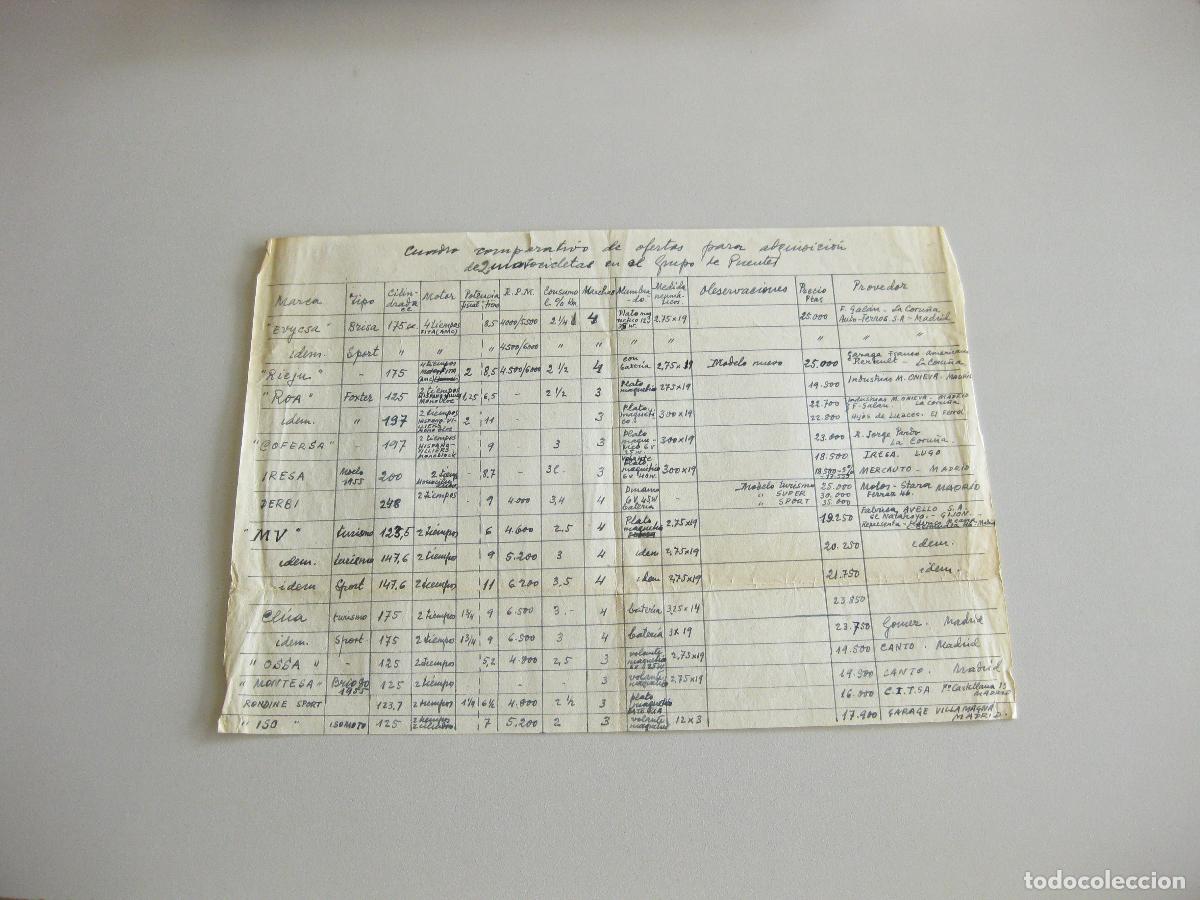 Cuadro comparativo de ofertas para adquisición
de 2 motocicletas en el Grupo de Puentes
Marca Tipo Cilindrada cc Motor Potencia fiscal freno R.P.M. Consumo L. % Km Marchas Alumbrado Medida neumáticos. Observaciones Precio Ptas Provedor
"Evycsa" Brisa 175 cc. 4 tiempos FITA (AMC) 8,5 4000/5500 2 1/4 4 2,75x19 25.000 F. Galán. La Coruña Auto-Ferros. S.A - Madrid
idem. Sport " " " 4500/6000 " " "
"Rieju" - 175 4 tiempos 2 8,5 4.500/6000 2 1/2 4 con batería 2,75x19 Modelo nuevo 25.000 Garage Franco-americano La Coruña
"ROA" Foxter 125 2 tiempos Monobloc 1,25 6,5 - 2 1/2 3 Plato magnetico 275x19 19.500 Industrias M. ONIEVA. MADRID
idem. " 197 2 tiempos HISPANO-VILLIERS Monobloc 2 11 3 Plato magnetico. 300x19 22.700 Industrias M. ONIEVA - MADRID F. Galán. La Coruña
22.800 Hijos de El Ferrol
"COFERSA" 197 2 tiempos HISPANO-VILLIERS MONOBLOCK - 9 3 3 Plato magnetico 6V 25W. 300x19 23.000 R. Jorge Pardo La Coruña.
IRESA Modelo 1955 200 2 tiempos - 8,7 3 L. 3 volante Plato magnetico 6V 40W. 300x19 18.500 IRESA. LUGO
MERCAUTO - MADRID
DERBI 248 2 tiempos - 9 4.000 3,4 4 Dinamo 6V. 45W batería - Modelo turismo 25.000 Motor-Stara MADRID
" SUPER 30.000 Ferraz 46.
" SPORT 35.000
"MV" turismo 123,5 2 tiempos 6 4.600 2,5 4 Plato magnetico 2,75x19 19.250 Fabrica AVELLO S.A. GIJON.-
idem. turismo 147,6 2 tiempos 9 5.200 3 4 idem 2,75x19 20.250 idem.
idem Sport 147,6 2 tiempos 11 6.200 3,5 4 idem 2,75x19 21.750 idem.
Clúa turismo 175 2 tiempos 1 3/4 9 6.500 3.- 4 batería 3,25x14 23.850
idem. Sport 175 2 tiempos 1 3/4 9 6.500 3 4 batería 3x19 23.750 Gomer. Madrid
"OSSA" - 125 2 tiempos 5,2 4.800 2,5 3 volante magnetico 6V. 25W 2,75x19 19.500 CANTO. Madrid
"MONTESA" Briogo 1955 125 2 tiempos - 3 volante magnetico 2,75x19 19.900 CANTO. Madrid
RONDINE SPORT 123,7 2 tiempos 1 1/4 6 1/2 4.800 2 1/2 3 plato magnetico 16.000 C.I.T.SA Pº Castellana 13 MADRID
"ISO" ISOMOTO 125 2 tiempos 2 cilindros 7 5.200 2 3 volante magnetico 12x3 17.900 GARAGE VILLAMAGNA MADRID.
todocoleccion